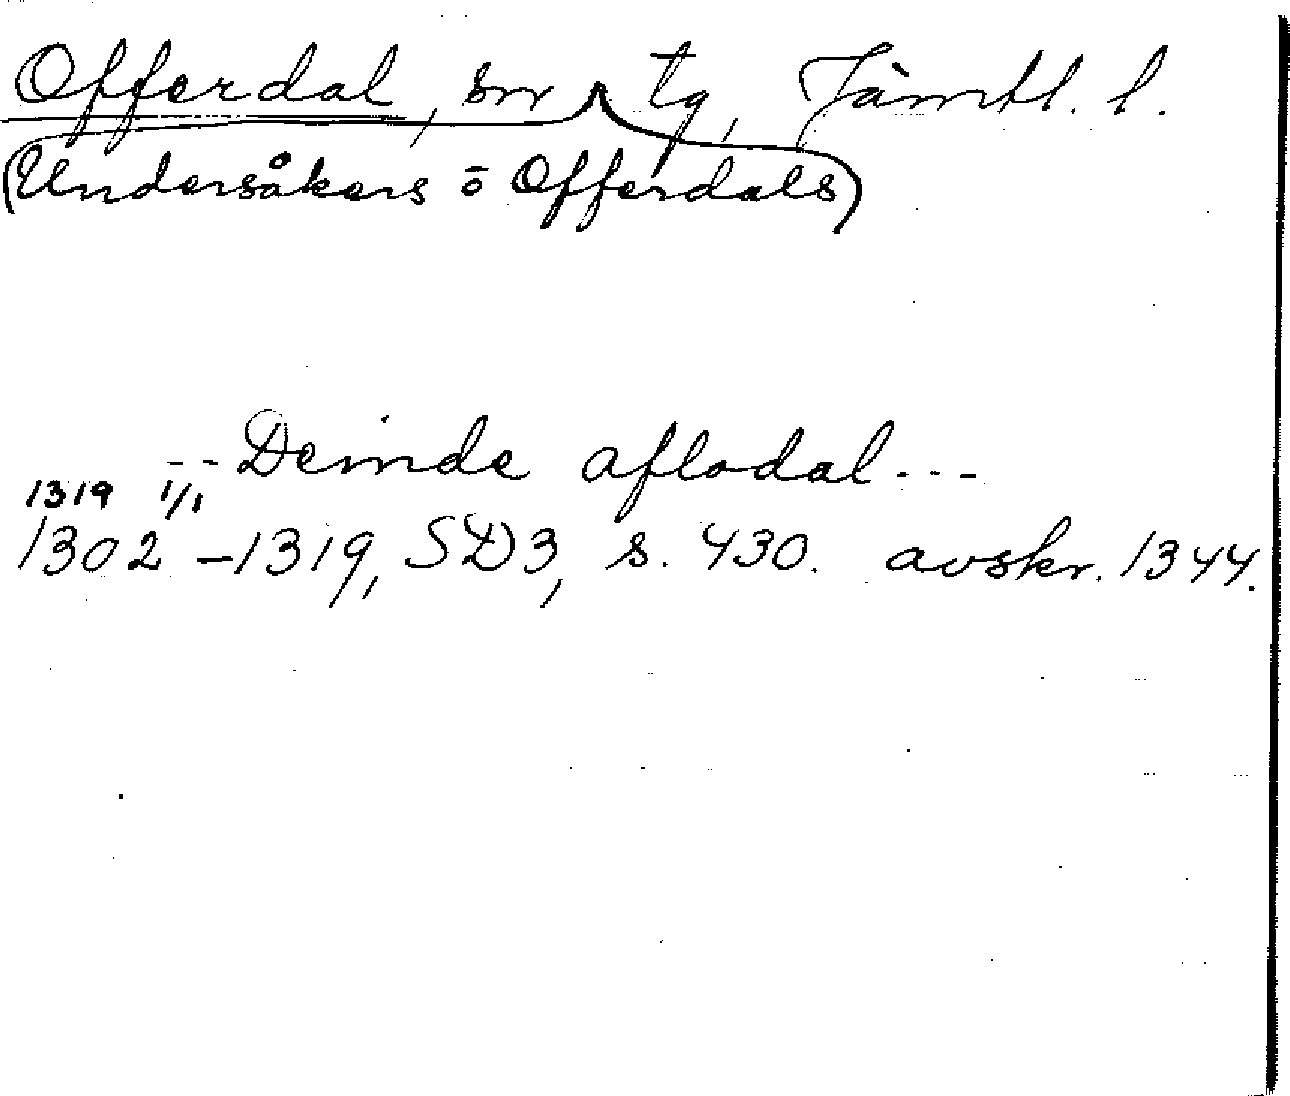 Offerdal, sn tg, Jämtl. l.
(Undersåkers o Offerdals)
-- Deinde aflodal ---
1319 1/1
1302-1319, SD3, s. 430. avskr. 1344.